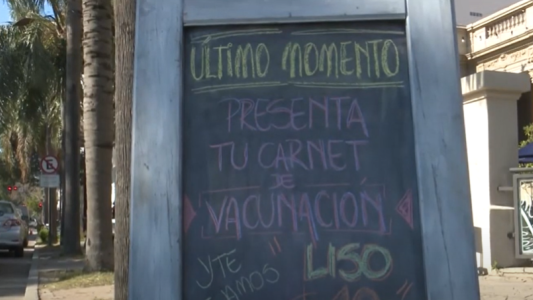 ÚLTIMO MOMENTO
PRESENTA
TU CARNET
DE
VACUNACIÓN
Y TE " LISO